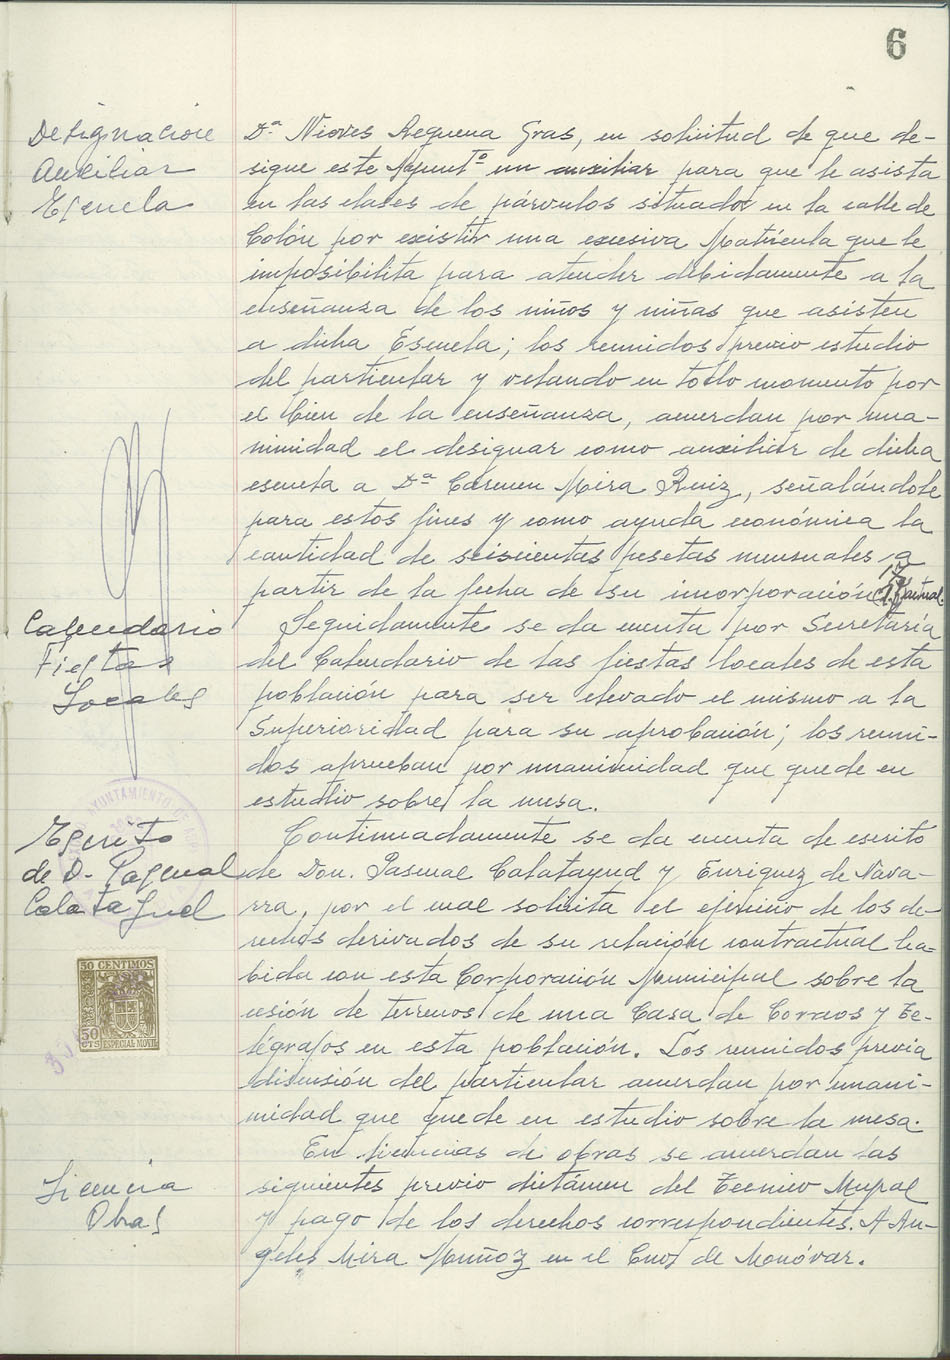 6
Designacion
Auxiliar
Escuela
Dª Nieves Requena Gras, en solicitud de que de-
sigue este Ayuntº un auxiliar para que le asista
en las clases de párvulos situadas en la calle de
Colón por existir una excesiva Matrícula que le
imposibilita para atender debidamente a la
enseñanza de los niños y niñas que asisten
a dicha Escuela; los reunidos previo estudio
del particular y velando en todo momento por
el bien de la enseñanza, acuerdan por una-
nimidad el designar como auxiliar de dicha
escuela a Dª Carmen Mira Ruiz, señalándole
para estos fines y como ayuda económica la
cantidad de seiscientas pesetas mensuales a
partir de la fecha de su incorporación actual.
Calendario
Fiestas
Locales
Seguidamente se da cuenta por Secretaria
del Calendario de las fiestas locales de esta
población para ser elevado el mismo a la
Superioridad para su aprobación; los reuni-
dos aprueban por unanimidad que quede en
estudio sobre la mesa.
AYUNTAMIENTO DE
Escrito
de D. Pascual
Calatayud
Continuadamente se da cuenta de escrito
de Don. Pascual Calatayud y Enriquez de Nava-
rra, por el cual solicita el ejercicio de los de-
rechos derivados de su relación contractual ha-
bida con esta Corporación Municipal sobre la
cesión de terrenos de una Casa de Correos y Te-
légrafos en esta población. Los reunidos previa
discusión del particular acuerdan por unani-
midad que quede en estudio sobre la mesa.
50 CENTIMOS
50
CTS ESPECIAL MOVIL
Licencia
Obras
En licencias de obras se acuerdan las
siguientes previo dictámen del Tecnico Mupal
y pago de los derechos correspondientes. A An-
geles Mira Muñoz en el Cno. de Monóvar.